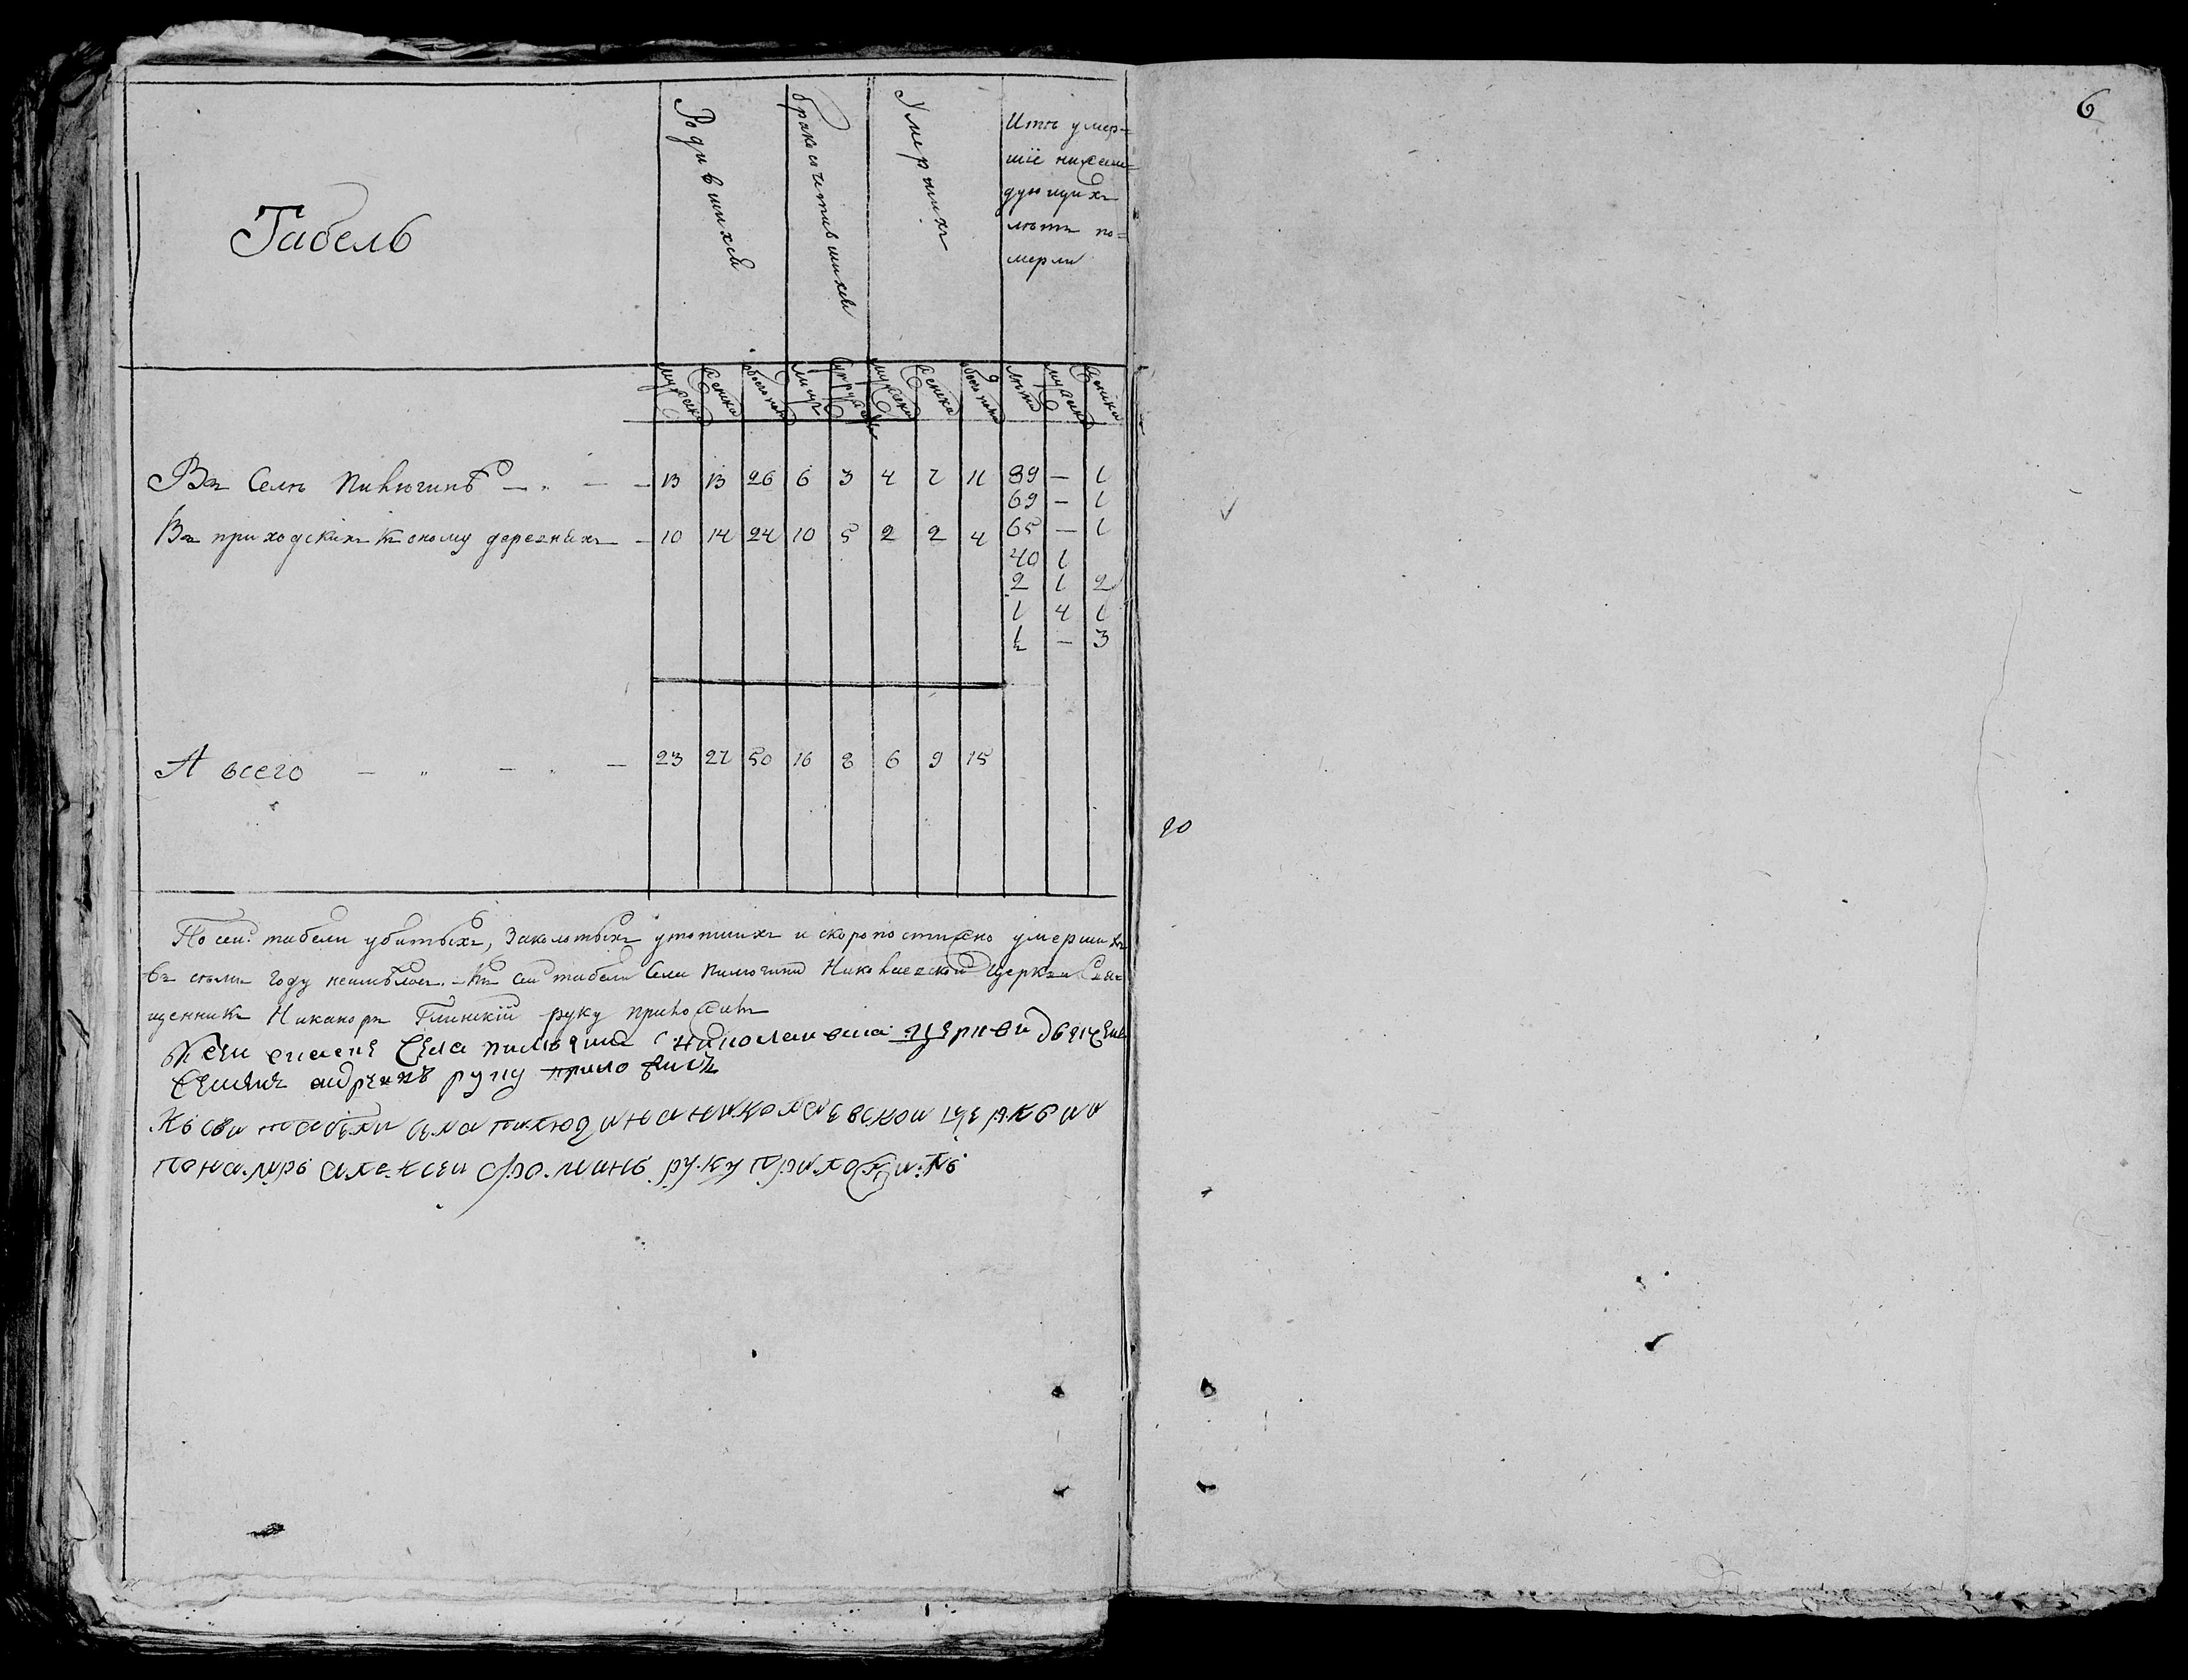 6
Табель
Родившихся
бракосочетавшихся
Умершихъ
Итъ умер=
шіе нижеслѣ=
дующихъ
лѣтъ по=
мерли
мужеска женска обоего пола лицъ супружествъ мужеска женска обоего пола лѣта мужеска женска
Въ Селѣ Пилюгинѣ 13 13 26 6 3 4 7 11 89 — 1
69 — 1
Въ приходскихъ къ оному деревняхъ 10 14 24 10 5 2 2 4 65 — 1
40 1
2 1 2
1 4 1
½ — 3
А всего 23 27 50 16 8 6 9 15
По сей табели убитыхъ, заколотыхъ утопшихъ и скоропостижно умершихъ
въ семъ году неимѣлось. Къ сей табели Села Пилюгина Николаевской Церкви Свя=
щенникъ Никаноръ Глинскій руку приложилъ
Села пилюгина николаевской церкви дьячекъ
андреевъ руку приложилъ
Къ сеи табели села пилюгина николаевскои церквии
понамарь алексеи фоминъ руку приложилъ
90